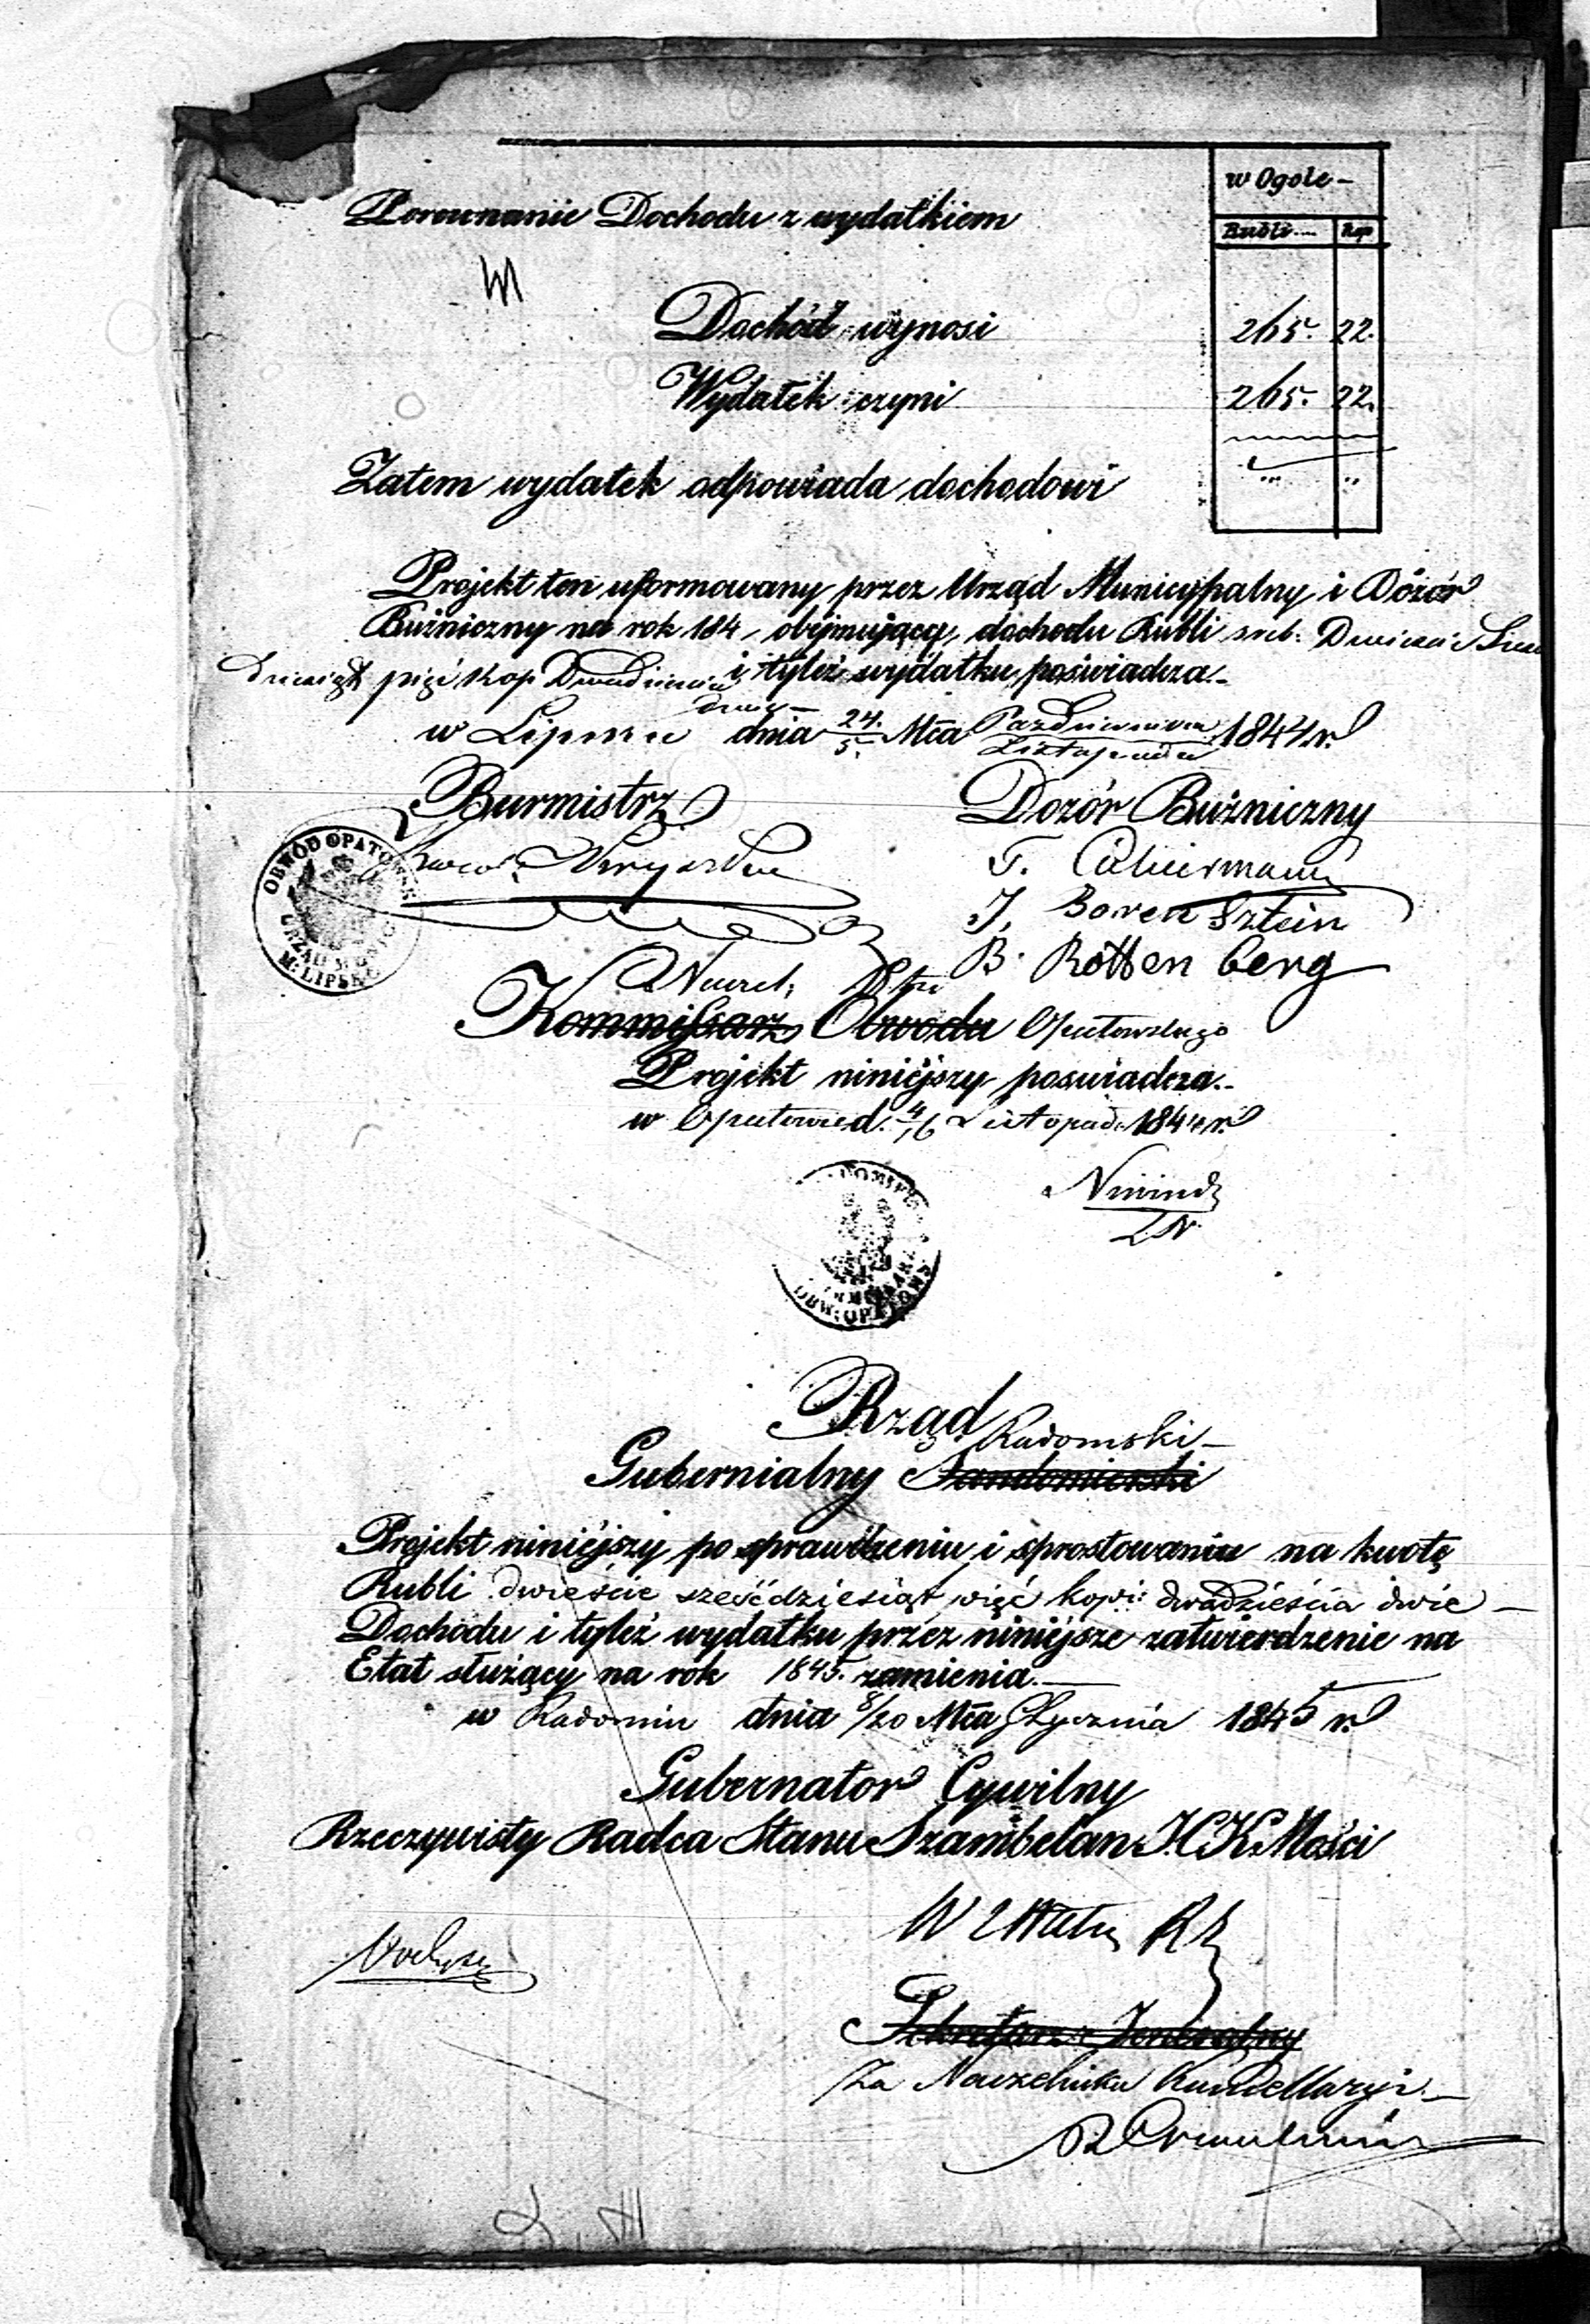 w Ogole -
Porownanie Dochodu z wydatkiem
Rubli Kop
Dochód wynosi 265. 22.
Wydatek czyni 265. 22.
Zatem wydatek odpowiada dochodowi
Projekt ten uformowany przez Urząd Municypalny i Dozór
Bużniczny na rok 184 obejmujący dochodu Rubli sreb:
dziesiąt pięć Kop i tyleż wydatku poświadcza.-
w Lipsku dnia 24./5. Mca Października/Listopada 1844 r.
Burmistrz Dozór Bużniczny
OBWÓD OPATOWSKI
M. LIPSKO
J. Boren Sztein
B. Rotten berg
Naczel:
Kommissarz Obwodu Opatowskiego
Projekt niniejszy poswiadcza.-
w Opatowie d. 4/16 Listopada 1844 r.
OBW: OPATOWS
Rząd
Radomski -
Gubernialny Sandomierski
Projekt niniejszy po sprawdzeniu i sprostowaniu na kwotę
Rubli dwieście sześćdziesiąt pięć kopi: dwadzieścia dwie -
Dochodu i tyleż wydatku przez niniejsze zatwierdzenie na
Etat służący na rok 1845. zamienia.-
w Radomiu dnia 8/20 Mca Stycznia 1845 r.
Gubernator Cywilny
Rzeczywisty Radca Stanu Szambelan J.C.K. Mości
Sekretarz Jeneralny
Za Naczelnika Kancellaryi.-